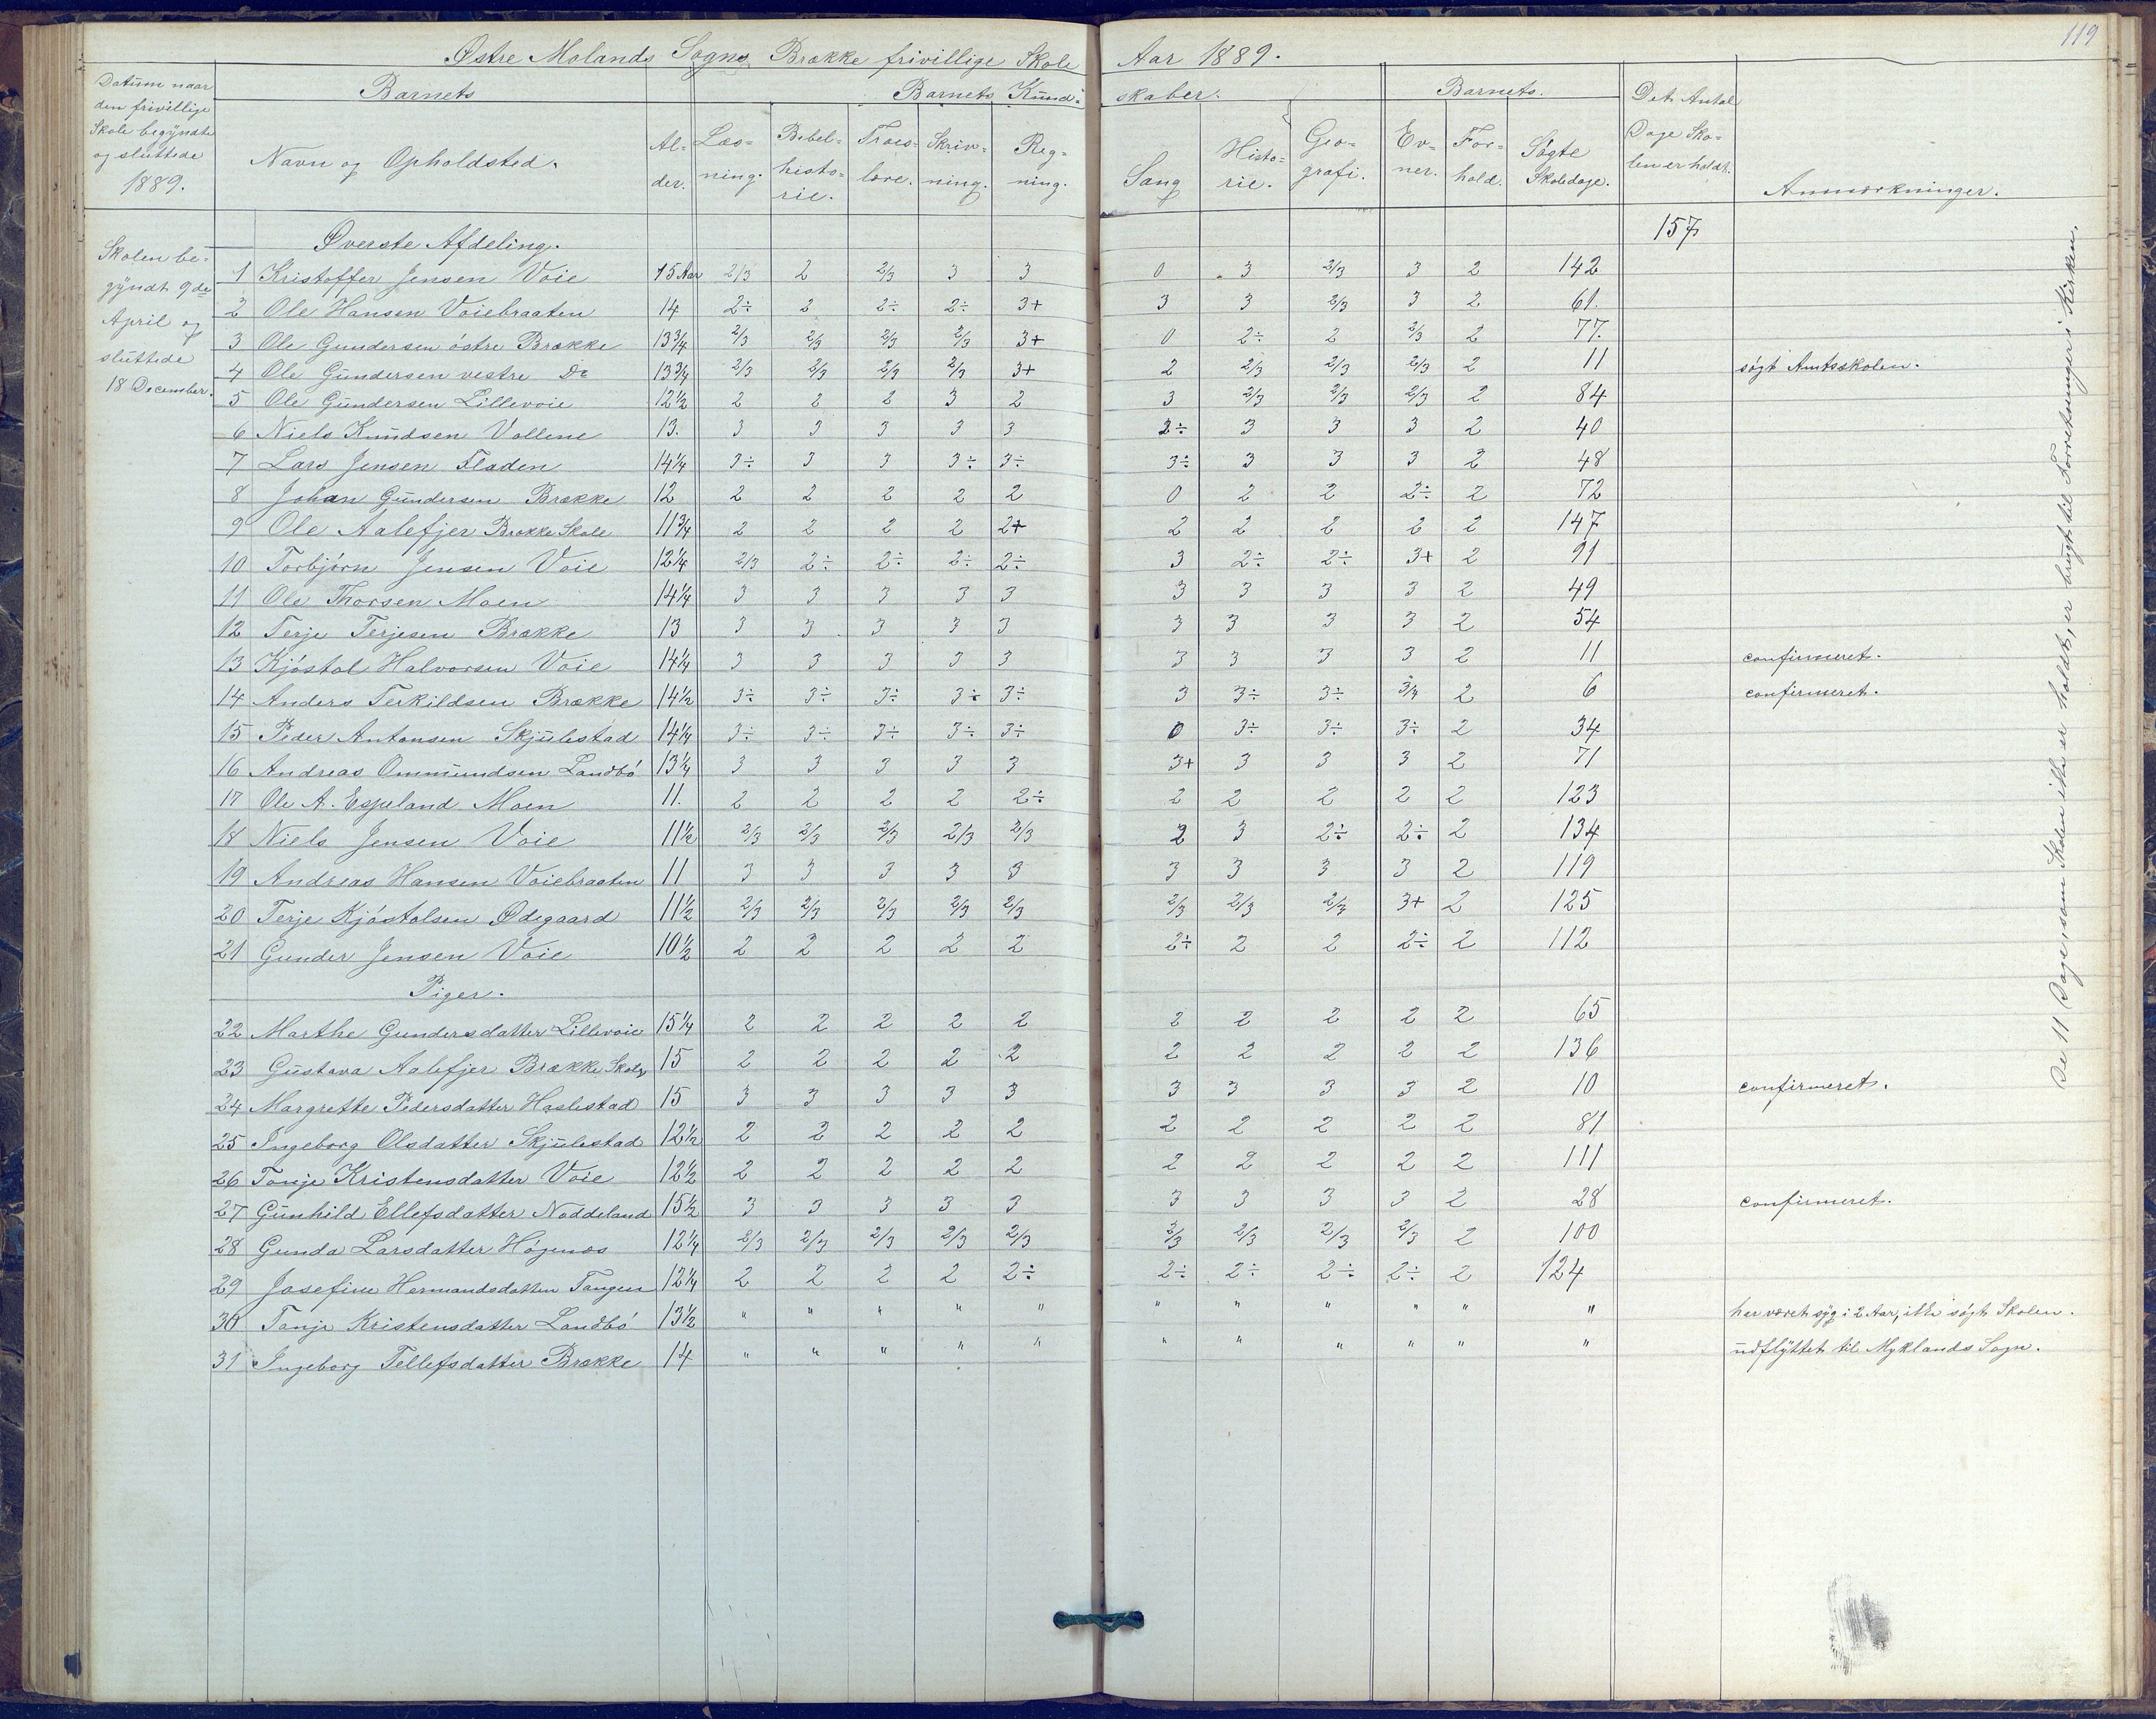 119
Østre Molands Sogns Brække frivillige Skole Aar 1889.
Datum naar den frivillige Skole begyndte og sluttede 1889.
Barnets
Barnets Kund- skaber.
Barnets.
Det Antal Dage Sko- len er holdt.
Navn og Opholdsted. Al- der. Læs- ning. Bibel- histo- rie. Troes- lære. Skriv- ning. Reg- ning. Sang Histo- rie. Geo- grafi. Ev- ner. For- hold. Søgte Skoledage. Anmærkninger.
157
Skolen be- gyndt 9de April og sluttede 18 December.
Øverste Afdeling.
1 Kristoffer Jensen Voie 15 Aar 2/3 2 2/3 3 3 0 3 2/3 3 2 142
2 Ole Hansen Voiebraaten 14 2÷ 2 2÷ 2÷ 3+ 3 3 2/3 3 2 61.
3 Ole Gundersen östre Brække 13¾ 2/3 2/3 2/3 2/3 3+ 0 2÷ 2 2/3 2 77.
4 Ole Gundersen vestre Do 13¾ 2/3 2/3 2/3 2/3 3+ 2 2/3 2/3 2/3 2 11 søgt Amtsskolen.
5 Ole Gundersen Lillevoie 12½ 2 2 2 3 2 3 2/3 2/3 2/3 2 84
6 Niels Knudsen Vollene 13. 3 3 3 3 3 2÷ 3 3 3 2 40
7 Lars Jensen Fladen 14¼ 3÷ 3 3 3÷ 3÷ 3÷ 3 3 3 2 48
8 Johan Gundersen Brække 12 2 2 2 2 2 0 2 2 2÷ 2 72
9 Ole Aalefjer Brække Skole 11¾ 2 2 2 2 2+ 2 2 2 2 2 147
10 Torbjörn Jensen Voie 12¼ 2/3 2÷ 2÷ 2÷ 2÷ 3 2÷ 2÷ 3+ 2 91
11 Ole Thorsen Moen 14¼ 3 3 3 3 3 3 3 3 3 2 49
12 Terje Terjesen Brække 13 3 3 3 3 3 3 3 3 3 2 54
13 Kjöstol Halvorsen Voie 14¼ 3 3 3 3 3 3 3 3 3 2 11 confirmeret.
14 Anders Terkildsen Brække 14½ 3÷ 3÷ 3÷ 3÷ 3÷ 3 3÷ 3÷ 3/4 2 6 confirmeret.
15 Peder Antonsen Skjulestad 14¼ 3÷ 3÷ 3÷ 3÷ 3÷ 0 3÷ 3÷ 3÷ 2 34
16 Andreas Ommundsen Landbö 13¼ 3 3 3 3 3 3+ 3 3 3 2 71
17 Ole A. Espeland Moen 11. 2 2 2 2 2÷ 2 2 2 2 2 123
18 Niels Jensen Voie 11½ 2/3 2/3 2/3 2/3 2/3 2 3 2÷ 2÷ 2 134
19 Andreas Hansen Voiebraaten 11 3 3 3 3 3 3 3 3 3 2 119
20 Terje Kjöstolsen Ødegaard 11½ 2/3 2/3 2/3 2/3 2/3 2/3 2/3 2/3 3+ 2 125
21 Gunder Jensen Voie 10½ 2 2 2 2 2 2÷ 2 2 2÷ 2 112
Piger.
22 Marthe Gundersdatter Lillevoie 15¼ 2 2 2 2 2 2 2 2 2 2 65
23 Gustava Aalefjer Brække Skole 15 2 2 2 2 2 2 2 2 2 2 136
24 Margrethe Pedersdatter Haslestad 15 3 3 3 3 3 3 3 3 3 2 10 confirmeret.
25 Ingeborg Olsdatter Skjulestad 12½ 2 2 2 2 2 2 2 2 2 2 81
26 Tonje Kristensdatter Voie 12½ 2 2 2 2 2 2 2 2 2 2 111
27 Gunhild Ellefsdatter Noddeland 15½ 3 3 3 3 3 3 3 3 3 2 28 confirmeret.
28 Gunda Larsdatter Högenæs 12¼ 2/3 2/3 2/3 2/3 2/3 2/3 2/3 2/3 2/3 2 100
29 Josefine Hermandsdatter Tangen 12¼ 2 2 2 2 2÷ 2÷ 2÷ 2÷ 2÷ 2 124
30 Tonje Kristensdatter Landbö 13½ " " " " " " " " " " " har været syg i 2 Aar, ikke søgt Skolen.
31 Ingeborg Tellefsdatter Brække 14 " " " " " " " " " " " udflyttet til Myklands Sogn.
De 11 Dage, som Skolen ikke er holdt, er brugt til Forretninger i Kirken.